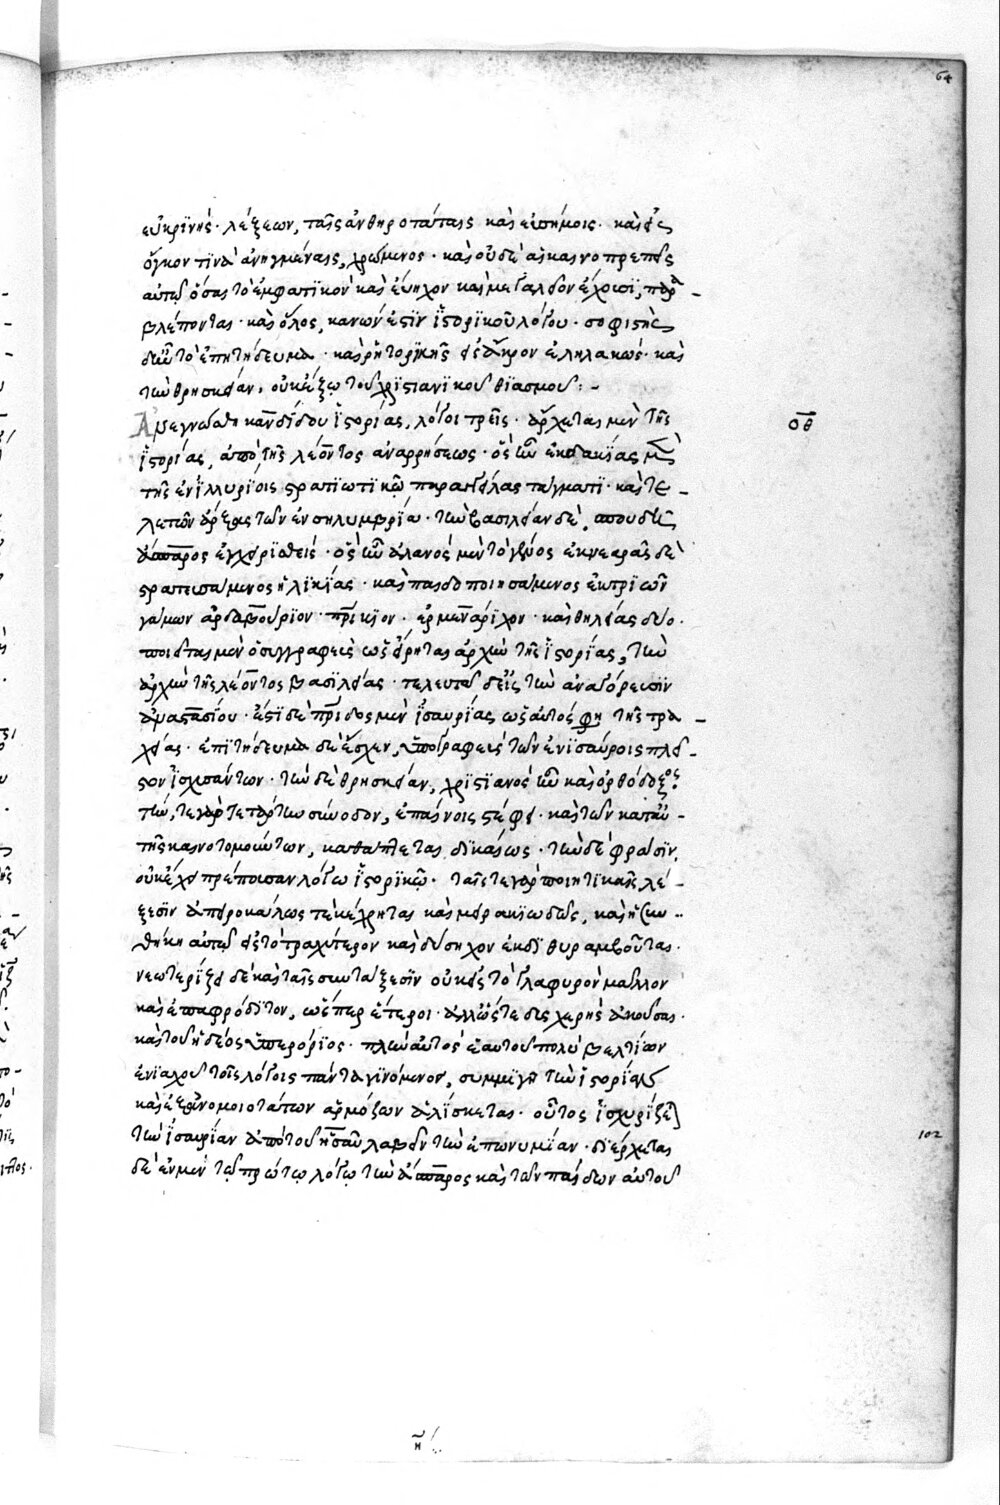 64
εὐκρινής· λέξεων, ταῖς ἀνθηροτάταις καὶ εὐσήμοις· καὶ εἰς
ὄγκον τινὰ ἀνηγμέναις, χρώμενος· καὶ οὐδὲ αἱ καινοπρεπεῖς
αὐτῷ ὅσαι τὸ ἐμφατικὸν καὶ εὔηχον καὶ μεγαλεῖον ἔχουσι, παρα-
βλέπονται· καὶ ὅλως, κανών ἐστιν ἱστορικοῦ λόγου· σοφιστὴς
δ' ἦν τὸ ἐπιτήδευμα· καὶ ῥητορικῆς εἰς ἄκρον ἐληλακώς· καὶ
τὴν θρησκείαν, οὐκ ἔξω τοῦ χριστιανικοῦ θιασμοῦ:-
Ἀνεγνώσθη κανδίδου ἱστορίας, λόγοι τρεῖς· ἄρχεται μὲν τῆς
οθ
ἱστορίας, ἀπὸ τῆς λέοντος ἀναρρήσεως· ὃς ἦν ἐκ δακίας μὲν
τῆς ἐν ἰλλυριοῖς στρατιωτικῷ παραγγείλας τάγματι· καὶ τε-
λετῶν ἄρξας τῶν ἐν σηλυμβρίᾳ· τὴν βασιλείαν δὲ, σπουδῇ
ἄσπαρος ἐγχειρισθείς· ὃς ἦν ἀλανὸς μὲν τὸ γένος ἐκ νεαρᾶς δὲ
στρατευσάμενος ἡλικίας· καὶ παιδοποιησάμενος ἐκ τριῶν
γάμων ἀρδαβούριον· πατρίκιον· ἑρμενάριχον· καὶ θηλείας δύο·
ποιεῖται μὲν ὁ συγγραφεὺς ὡς εἴρηται ἀρχὴν τῆς ἱστορίας, τὴν
ἀρχὴν τῆς λέοντος βασιλείας· τελευτᾷ δὲ εἰς τὴν ἀναγόρευσιν
ἀναστασίου· ἔστι δὲ πατρίδος μὲν ἰσαυρίας ὡς αὐτός φησι τῆς τρα-
χείας· ἐπιτήδευμα δὲ ἔσχεν, ὑπογραφεὺς τῶν ἐν ἰσαύροις πλεῖ-
στον ἰσχυσάντων· τὴν δὲ θρησκείαν, χριστιανὸς ἦν καὶ ὀρθόδοξος·
τήν, τε γὰρ τετάρτην σύνοδον, ἐπαίνοις στέφει· καὶ τῶν κατ' αὐ-
τῆς καινοτομούντων, καθάπτεται δικαίως· τὴν δὲ φράσιν,
οὐκ ἔχει πρέπουσαν λόγῳ ἱστορικῷ· ταῖς τε γὰρ ποιητικαῖς λέ-
ξεσιν ἀπειροκάλως τε κέχρηται καὶ μειρακιωδῶς, καὶ ἡ συν-
θήκη αὐτῷ εἰς τὸ τραχύτερον καὶ δύσηχον ἐκδιθυραμβοῦται·
νεωτερίζει δὲ καὶ ταῖς συντάξεσιν οὐκ εἰς τὸ γλαφυρὸν μᾶλλον
καὶ ἐπαφρόδιτον, ὥσπερ ἕτεροι· ἀλλ' ὥστε δυσχερὴς ἀκοῦσαι·
καὶ τοῦ ἡδέος ὑπερόριος· πλὴν αὐτὸς ἑαυτοῦ πολὺ βελτίων
ἐνιαχοῦ τοῖς λόγοις πάντα γινόμενον, συμμιγῆ τὴν ἱστορίαν
καὶ ἐξ ἀνομοιοτάτων ἁρμόζων ἁλίσκεται· οὗτος ἰσχυρίζεται
τὴν ἰσαυρίαν ἀπὸ τοῦ ἠσαῦ λαβεῖν τὴν ἐπωνυμίαν· διέρχεται
102
δὲ ἐν μὲν τῷ πρώτῳ λόγῳ τὴν ἄσπαρος καὶ τῶν παίδων αὐτοῦ
η